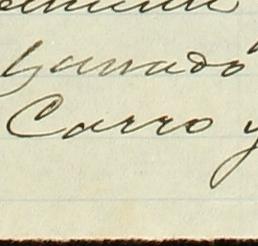 Ganado
Carro y